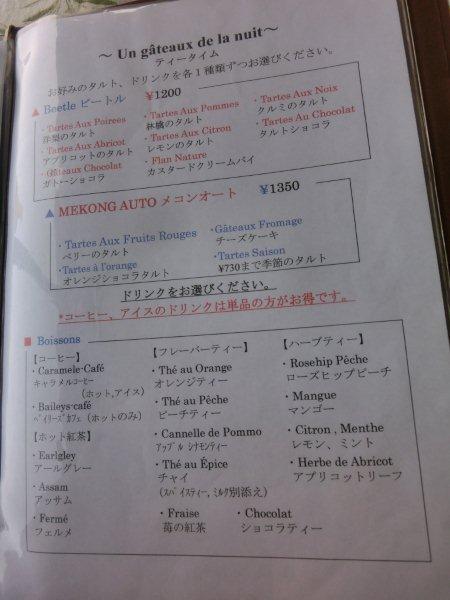 ～ Un gâteaux de la nuit～
ティータイム
お好みのタルト、ドリンクを各1種類ずつお選びください。
▲ Beetle ビートル ¥1200
・Tartes Aux Poirees
洋梨のタルト
・Tartes Aux Abricot
アプリコットのタルト
・Gâteaux Chocolat
ガトーショコラ
・Tartes Aux Pommes
林檎のタルト
・Tartes Aux Citron
レモンのタルト
・Flan Nature
カスタードクリームパイ
・Tartes Aux Noix
クルミのタルト
・Tartes Au Chocolat
タルトショコラ
▲ MEKONG AUTO メコンオート ¥1350
・Tartes Aux Fruits Rouges
ベリーのタルト
・Tartes à l'orange
オレンジショコラタルト
・Gâteaux Fromage
チーズケーキ
・Tartes Saison
¥730まで季節のタルト
ドリンクをお選びください。
*コーヒー、アイスのドリンクは単品の方がお得です。
■ Boissons
【コーヒー】
・Caramele-Café
キャラメルコーヒー
(ホット,アイス)
・Baileys-café
ベイリーズカフェ (ホットのみ)
【ホット紅茶】
・Earlgley
アールグレー
・Assam
アッサム
・Fermé
フェルメ
【フレーバーティー】
・Thé au Orange
オレンジティー
・Thé au Pêche
ピーチティー
・Cannelle de Pommo
アップル シナモンティー
・Thé au Épice
チャイ
(スパイスティー, ミルク別添え)
・Fraise
苺の紅茶
・Chocolat
ショコラティー
【ハーブティー】
・Rosehip Pêche
ローズヒップピーチ
・Mangue
マンゴー
・Citron , Menthe
レモン、ミント
・Herbe de Abricot
アプリコットリーフ